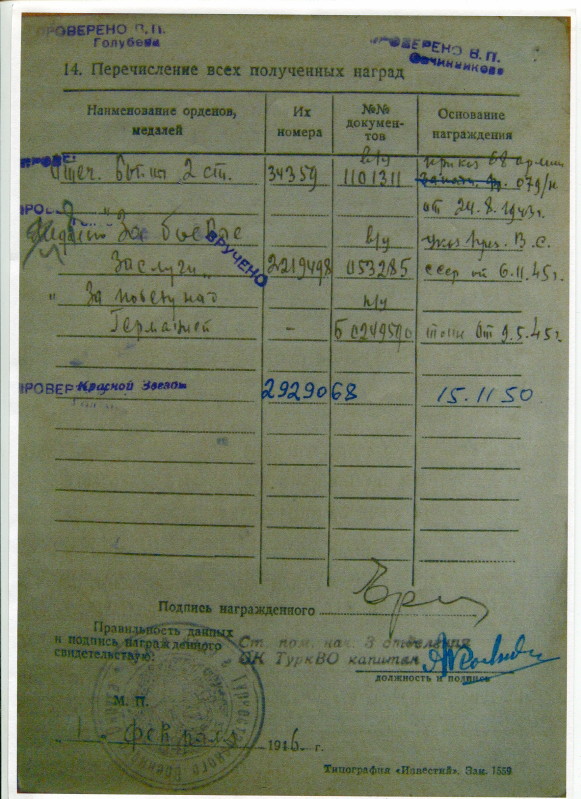 ПРОВЕРЕНО В.П.
Голубева
ПРОВЕРЕНО В.П.
Овчинникова
14. Перечисление всех полученных наград
Наименование орденов, медалей
Их номера
№№ документов
Основание награждения
в/у
приказ 68 армии
Отеч. Войны 2 ст.
34359
1101311
079/н
от 24.8.1943г.
Медаль "За боевые
в/у
указ През. В.С.
ВРУЧЕНО
Заслуги"
2219498
053285
СССР от 6.11.45г.
"За победу над
п/у
Германией
-
от 9.5.45г.
ПРОВЕР
Красной Звезды
2929068
15.11.50.
Подпись награжденного
Правильность данных
и подпись награжденного
свидетельствую:
Ст. пом. нач. 3 отделения
ОК ТуркВО капитан
должность и подпись
М. П.
1 февраля 1946 г.
Типография «Известий». Зак. 1559